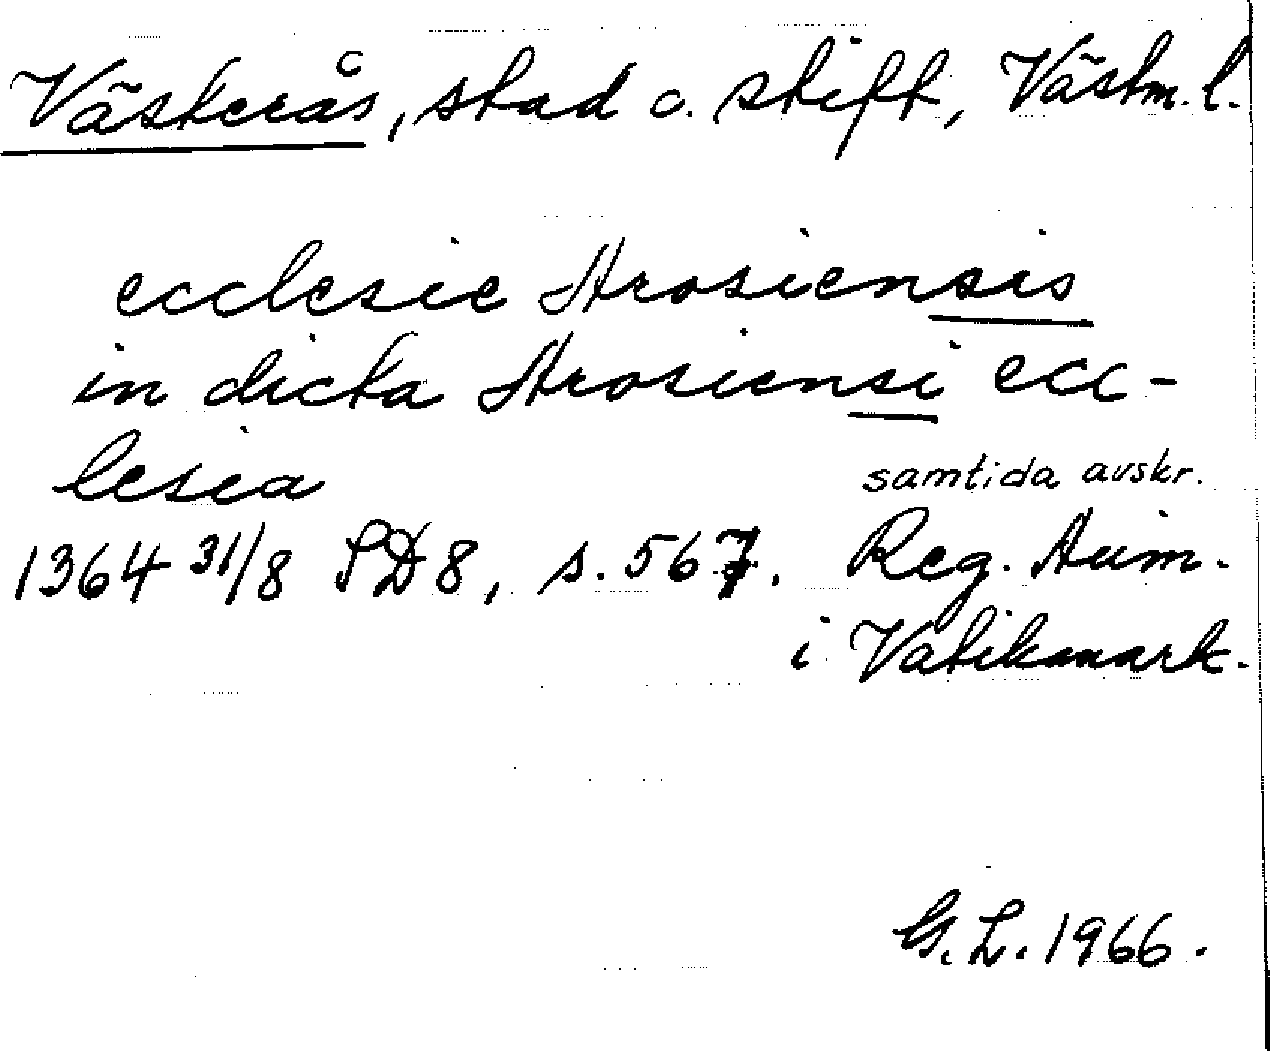 Västerås, stad o. stift, Västm. l.
ecclesie Arosiensis
in dicta Arosiensi ecc-
lesia
samtida avskr.
1364 31/8 SD 8, s. 567. Reg. Avin.
i Vatikanark.
G. L. 1966.